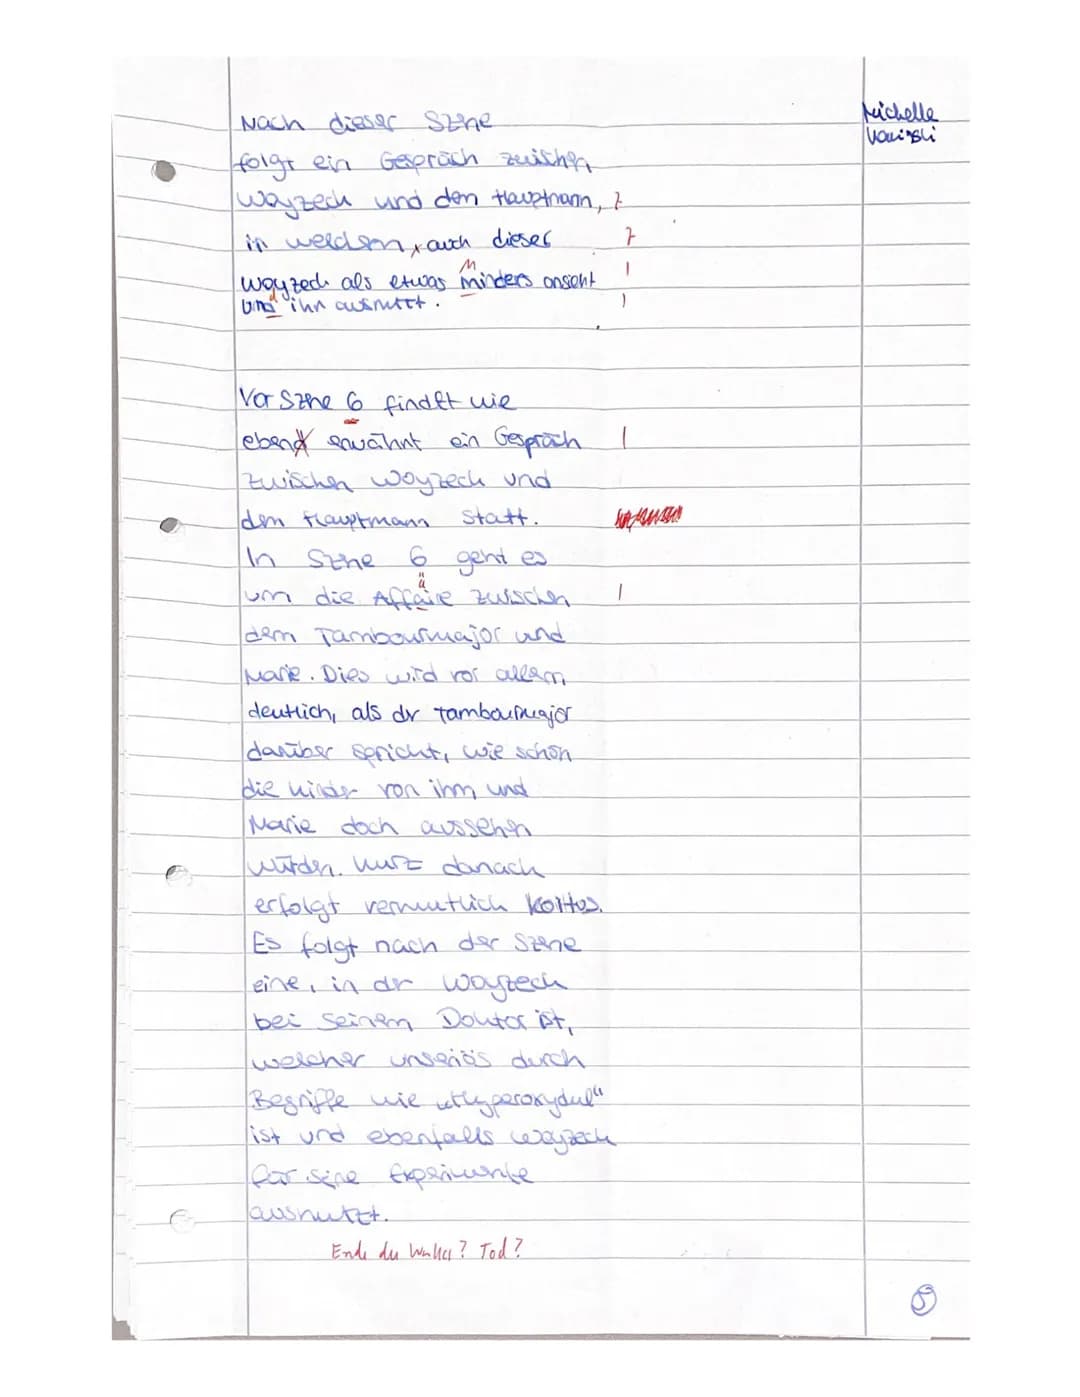 Nach dieser Szene
Michelle
folgt ein Gespräch zwischen
Woyzeck und dem Hauptmann, 7
in welchem, auch dieser 7
M
Woyzeck als etwas minders ansieht |
und ihn ausnutzt. |
Vor Szene 6 findet wie
ebend erwähnt ein Gespräch |
zwischen Woyzeck und
dem Hauptmann statt.
In Szene 6 geht es
ä
um die Affaire zwischen |
dem Tambourmajor und
Marie. Dies wird vor allem
deutlich, als der Tambourmajor
darüber spricht, wie schön
die Kinder von ihm und
Marie doch aussehen
würden. Kurz danach
erfolgt vermutlich Koitus.
Es folgt nach der Szene
eine, in der Woyzeck
bei seinem Doktor ist,
welcher unseriös durch
Begriffe wie „Hyperoxydul“
ist und ebenfalls Woyzeck
für seine Experimente
ausnutzt.
Ende des Tod?
5